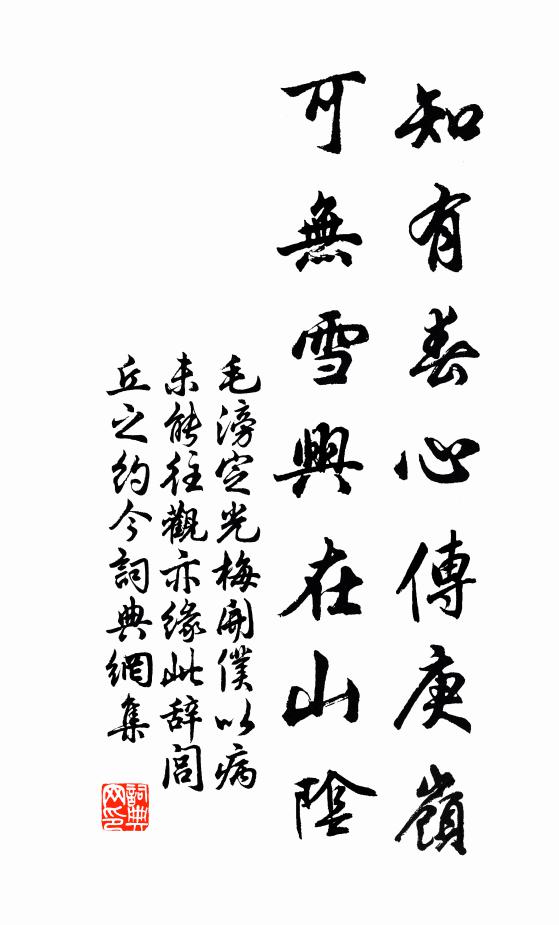 知有春心傳庾嶺
可無雪興在山陰
毛滂定光梅開僕以病
未能往觀亦緣此辞閭
丘之約今詞典網集
詞典网印